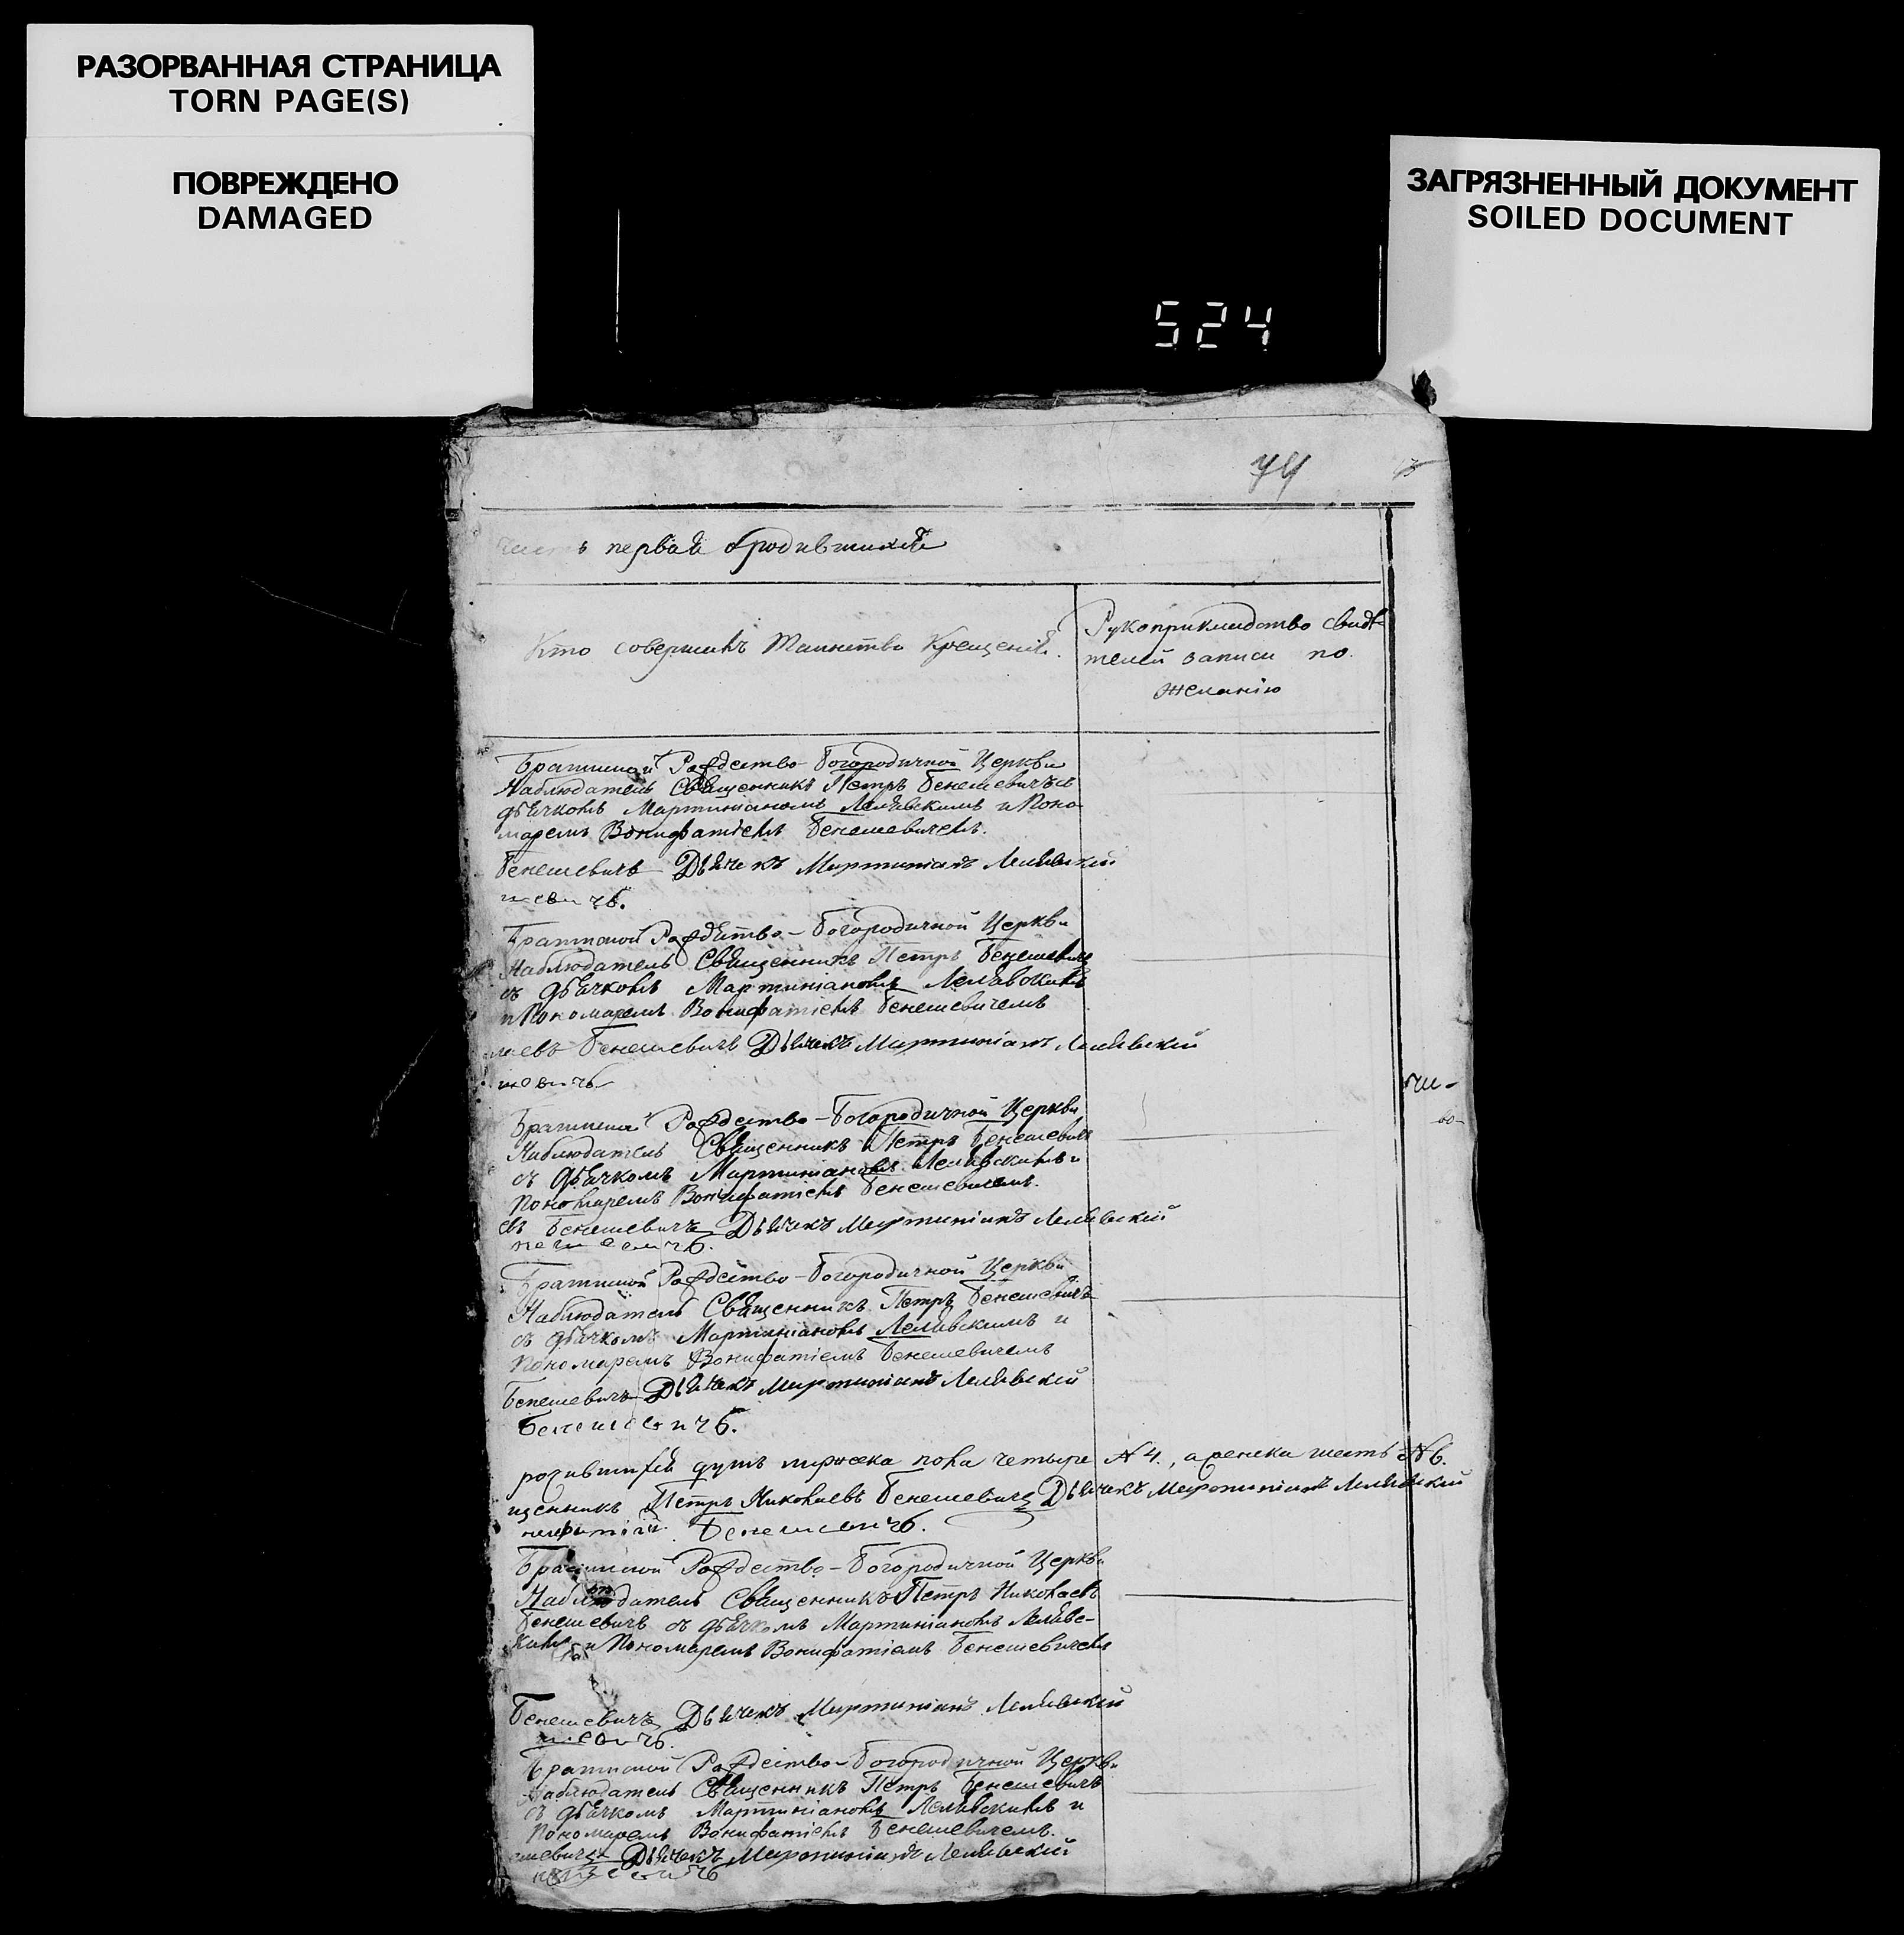 РАЗОРВАННАЯ СТРАНИЦА
TORN PAGE(S)
ПОВРЕЖДЕНО
DAMAGED
ЗАГРЯЗНЕННЫЙ ДОКУМЕНТ
SOILED DOCUMENT
524
74
первая о родившихся
Кто совершалъ Таинство Крещенія.
Рукоприкладство свидѣ-
телей записи по
желанію
Рождество-Богородичной Церкви
Наблюдатель Священникъ Петръ Бенешевичъ съ
дьячкомъ Мартиніаномъ Лелявскимъ и Поно-
маремъ Вонифатіемъ Бенешевичемъ.
Бенешевичъ Дьячекъ Мартиніанъ Лелявскій
шевичъ.
Рождество-Богородичной Церкви
Наблюдатель Священникъ Петръ Бенешевичъ
съ дьячкомъ Мартиніаномъ Лелявскимъ
и Пономаремъ Вонифатіемъ Бенешевичемъ
лаевъ Бенешевичъ Дьячекъ Мартиніанъ Лелявскій
шевичъ
Рождество-Богородичной Церкви
Наблюдатель Священникъ Петръ Бенешевичъ
съ дьячкомъ Мартиніаномъ Лелявскимъ и
Пономаремъ Вонифатіемъ Бенешевичемъ.
евъ Бенешевичъ Дьячекъ Мартиніанъ Лелявскій
нешевичъ.
Рождество-Богородичной Церкви
Наблюдатель Священникъ Петръ Бенешевичъ
съ дьячкомъ Мартиніаномъ Лелявскимъ и
Пономаремъ Вонифатіемъ Бенешевичемъ
Бенешевичъ Дьячекъ Мартиніанъ Лелявскій
Бенешевичъ.
душъ мужска пола четыре N 4., а женска шесть N 6.
щенникъ Петръ Николаевъ Бенешевичъ Дьячекъ Мартиніанъ Лелявскій
нифатій Бенешевичъ.
Рождество-Богородичной Церкви
Наблюдатель Священникъ Петръ Николаевъ
Бенешевичъ съ дьячкомъ Мартиніаномъ Лелявс-
кимъ и Пономаремъ Вонифатіемъ Бенешевичемъ
Бенешевичъ Дьячекъ Мартиніанъ Лелявскій
шевичъ.
Рождество-Богородичной Церкви
Наблюдатель Священникъ Петръ Бенешевичъ
съ дьячкомъ Мартиніаномъ Лелявскимъ и
Пономаремъ Вонифатіемъ Бенешевичемъ.
ешевичъ Дьячекъ Мартиніанъ Лелявскій